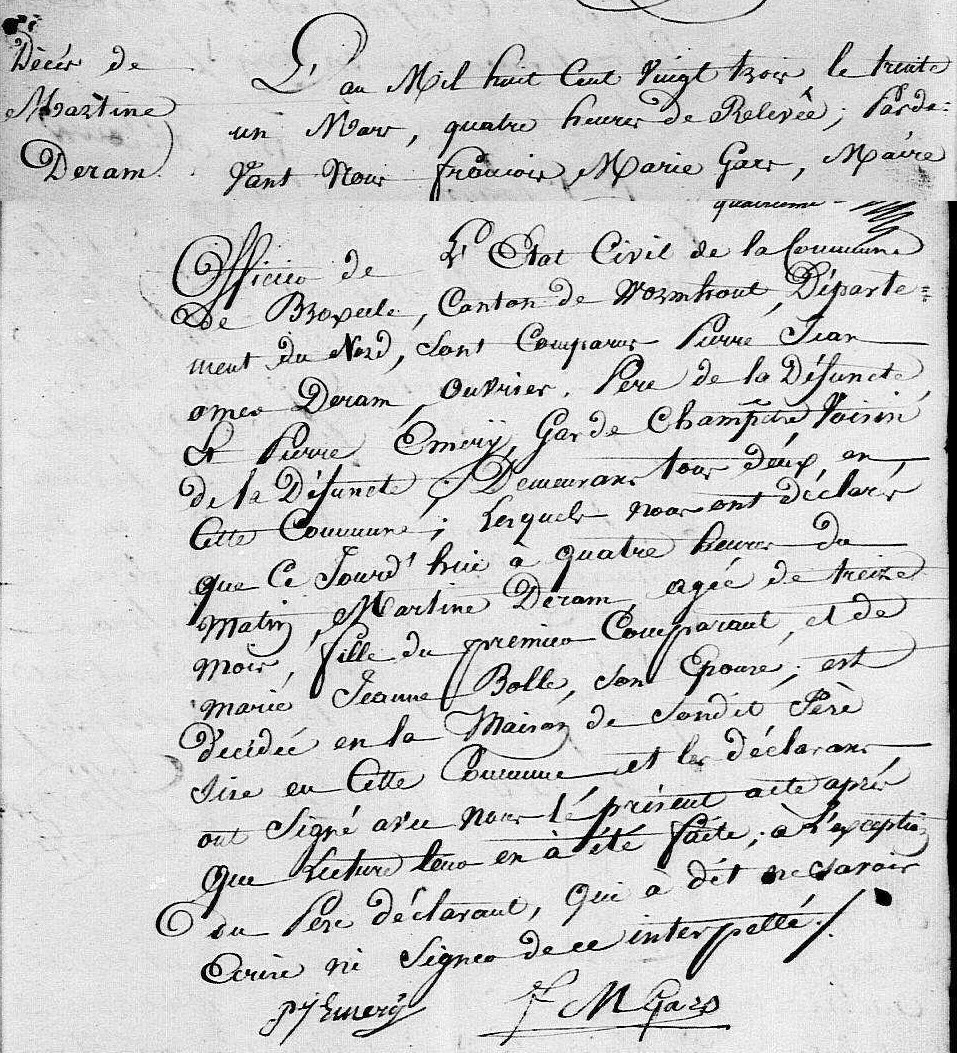 Décés de
Martine
Deram
L'an Mil huit Cent Vingt trois le trente
un Mars, quatre heures de Relevée; Parde-
Vant Nous françois Marie Gars, Maire
quatrieme
Officier de L'Etat Civil de la Commune
De Broxeele, Canton de Wormhout, Départe=
ment du Nord, Sont Comparus Pierre Jean
omer Deram, Ouvrier, Pere de la Défuncte,
Et Pierre Émerÿ, Garde Champêtre Voisin
de la Défuncte, Demeurans tous deux, en
Cette Commune; Lesquels nous ont déclarés
que Ce Jourd'hui à quatre heures du
Matin, Martine Deram, agée de treize
mois, fille du premier Comparant, et de
marie Jeanne Bolle, son Epouse, est
décédée en la Maison de Sondit Père
Sise en Cette Commune et les déclarans
ont Signé avec nous le présent acte aprés
que Lecture leur en à été faite; à L'exception
Du Pere déclarant, qui à dit ne Savoir
Ecrire ni Signer de ce interpellé./
pj Emerÿ
f M Gars